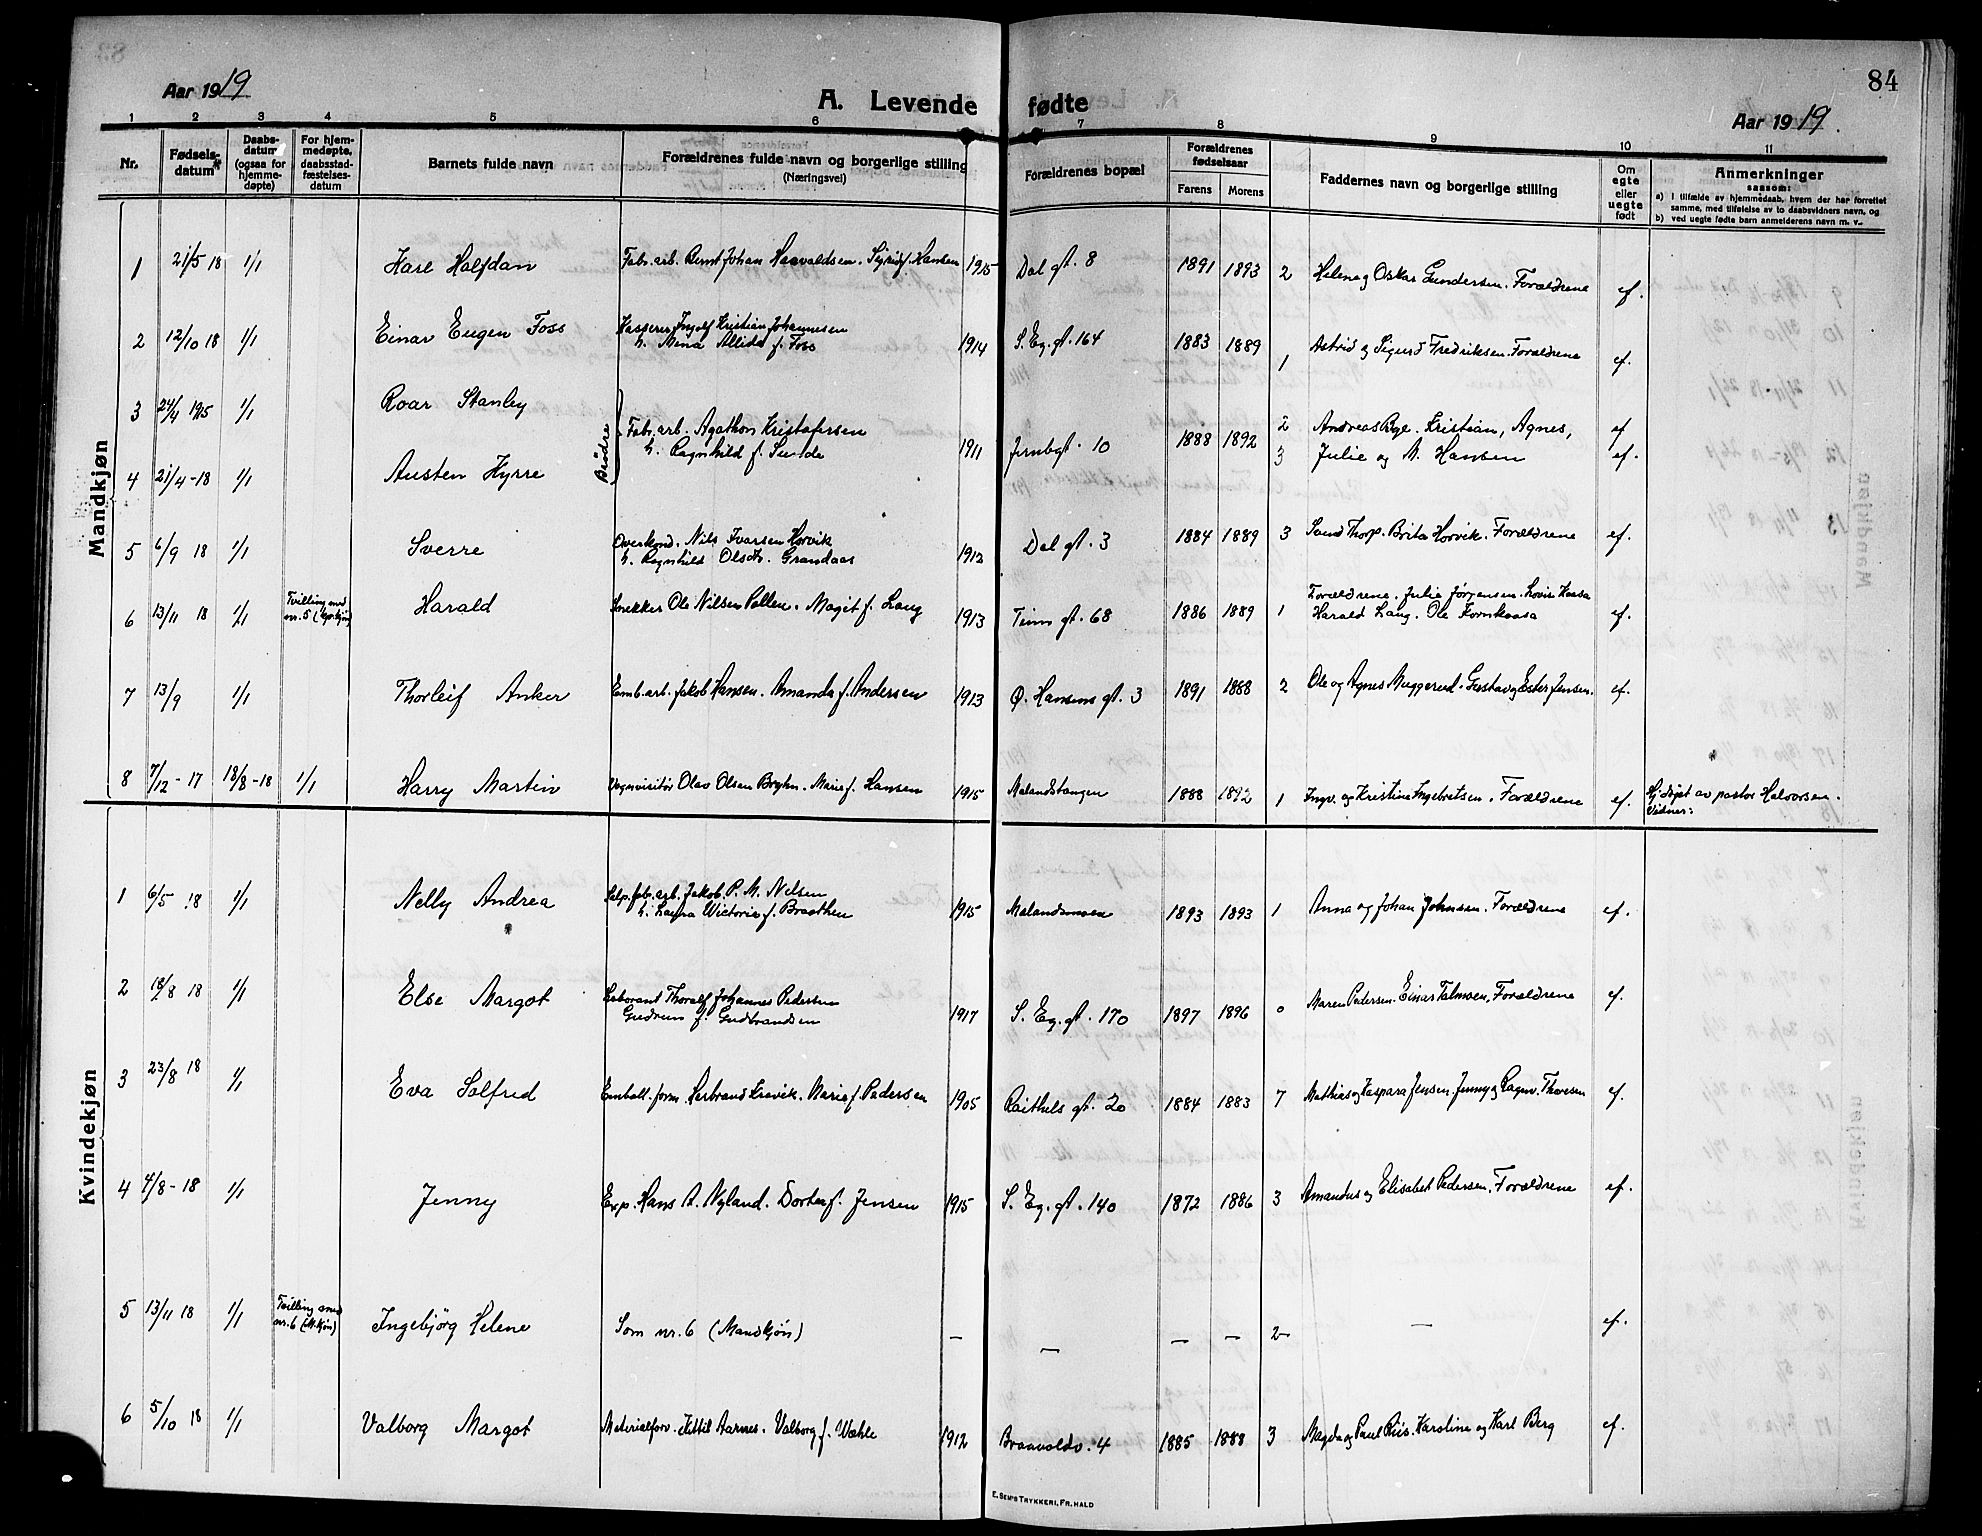 84
Aar 1919
A. Levende fødte
Aar 1919.
1 2 3 4 5 6 7 8 9 10 11
Nr.
Fødsels-
datum*
Daabs-
datum
(ogsaa for
hjemme-
døpte)
For hjem-
medøpte,
daabsstad-
fæstelses-
datum
Barnets fulde navn
Forældrenes fulde navn og borgerlige stilling
(Næringsvei)
Forældrenes bopæl
Forældrenes
fødselsaar
Farens Morens
Faddernes navn og borgerlige stilling
Om
egte
eller
uegte
født
Anmerkninger
saasom:
a) I tilfælde av hjemmedaab, hvem der har forrettet
samme, med tilføielse av to daabsvidners navn, og
b) ved uegte fødte barn anmelderens navn m. v.
Mandkjøn
1 21/5 18 1/1 Karl Halfdan Fabr.arb. Bernt Johan Haavaldsen. Sigrid f. Hansen 1915 Dal gt. 8 1891 1893 2 Helene og Oskar Gundersen. Forældrene ef.
2 12/10 18 1/1 Einar Eugen Foss Kasserer Ingolf Kristian Johannesen
h. Mina Allida f. Foss 1914 S. Eg. gt. 164 1883 1889 1 Astrid og Sigurd Fredriksen. Forældrene ef.
3 24/4 1915 1/1 Roar Stanley
Brødre Fabr.arb. Agathon Kristofersen
h. Ragnhild f. Sunde 1911 Jernbgt. 10 1888 1892 2 Andreas Bye. Kristian, Agnes, ef
4 21/4-18 1/1 Austen Hyrre 3 Julie og A. Hansen ef.
5 6/9 18 1/1 Sverre Overkond. Nils Ivarsen Horvik
h. Ragnhild Olsdtr. Grandaas 1912 Dal gt. 3 1884 1889 3 Svend Thorp. Brita Horvik. Forældrene ef.
6 13/11 18 1/1 Tvilling med
nr. 5 (Kv.kjøn) Harald Snekker Ole Nilsen Pollen. Magit f. Lang 1913 Tinns gt. 68 1886 1889 1 Forældrene. Julie Jørgensen. Lovise Kaasa
Harald Lang. Ole Fornkaasa ef.
7 13/9 1/1 Thorleif Anker Emb.arb. Jakob Hansen. Amanda f. Andersen 1913 Ø. Hansens gt. 3 1891 1888 2 Ole og Agnes Muggerud. Gustav og Ester Jensen. ef.
8 7/12-17 18/8-18 1/1 Harry Martin Vognvisitør Olav Olsen Bryhn. Marie f. Hansen 1915 Mælandstangen 1888 1892 1 Ingv. og Kristine Ingebretsen. Forældrene ef. Hj.døpt av pastor Halvorsen.
Vidner:
Kvindekjøn
1 6/5 18 1/1 Nelly Andrea Salp.fab.arb. Jakob P. M. Nilsen
h. Lagna Victoria f. Braathen 1915 Mælandsmoen 1893 1893 1 Anna og Johan Johnsen. Forældrene ef.
2 18/8 18 1/1 Else Margot Laborant Thoralf Johannes Pedersen
Gudrun f. Gudbrandsen 1917 S. Eg. gt. 170 1897 1896 0 Maren Pedersen. Einar Talmoen, Forældrene ef.
3 23/8 18 1/1 Eva Solfred Emball.form. Herbrand Kravik. Marie f. Pedersen 1905 Raithels gt. 20 1884 1883 7 Mathias og Kaspara Jensen. Jenny og Ragnv. Thoresen ef.
4 4/8-18 1/1 Jenny Exp. Hans A. Nyland. Dorthea f. Jensen 1915 S. Eg. gt. 140 1872 1886 3 Amandus og Elisabet Pedersen. Forældrene ef.
5 13/11 18 1/1 Tvilling med
nr. 6 (M.kjøn) Ingebjörg Helene Som nr. 6 (Mandkjön) — — — — 2 — ef.
6 5/10 18 1/1 Valborg Margot Materialforv. Kittil Aarnes. Valborg f. Wæhle 1912 Braavoldv. 4 1885 1888 3 Magda og Paul Riis. Karoline og Karl Berg ef.
E. SEM'S TRYKKERI, FR.HALD